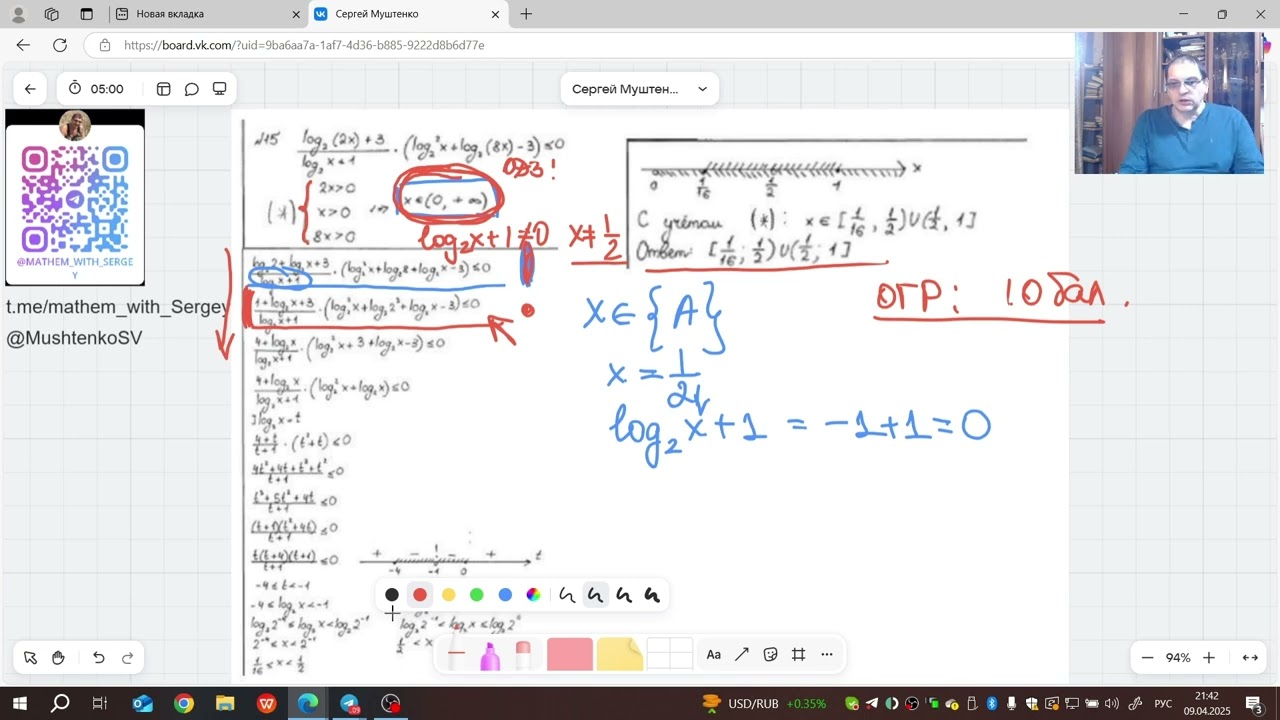 Новая вкладка
Сергей Муштенко
https://board.vk.com/?uid=9ba6aa7a-1af7-4d36-b885-9222d8b6d77e
05:00
Сергей Муштен...
@MATHEM_WITH_SERGE
Y
t.me/mathem_with_Sergey
@MushtenkoSV
№15 (log₂(2x)+3)/(log₂x+1) · (log₂²x+log₂(8x)-3)≤0
ОДЗ!
(*) { 2x>0
x>0 => x∈(0, +∞)
8x>0
log₂x+1≠0 x≠1/2
(log₂2+log₂x+3)/(log₂x+1) · (log₂²x+log₂8+log₂x-3)≤0
(1+log₂x+3)/(log₂x+1) · (log₂²x+log₂2³+log₂x-3)≤0
(4+log₂x)/(log₂x+1) · (log₂²x+3+log₂x-3)≤0
(4+log₂x)/(log₂x+1) · (log₂²x+log₂x)≤0
log₂x=t
(4+t)/(t+1) · (t²+t)≤0
(4t²+4t+t³+t²)/(t+1)≤0
(t³+5t²+4t)/(t+1)≤0
(t+1)(t²+4t)/(t+1)≤0
t(t+4)(t+1)/(t+1)≤0
+ − ! − + t
-4 -1 0
-4≤t<-1
-4≤log₂x<-1
log₂2⁻⁴≤log₂x<log₂2⁻¹
2⁻⁴≤x<2⁻¹
1/16≤x<1/2
0 1/16 1/2 1 x
С учётом (*): x∈[1/16, 1/2)∪(1/2, 1]
Ответ: [1/16; 1/2)∪(1/2; 1]
ОГР: 1.0 бал.
x∈{A}
x=1/2
log₂x+1 = -1+1=0
Aa
94%
USD/RUB +0.35%
РУС
21:42
09.04.2025